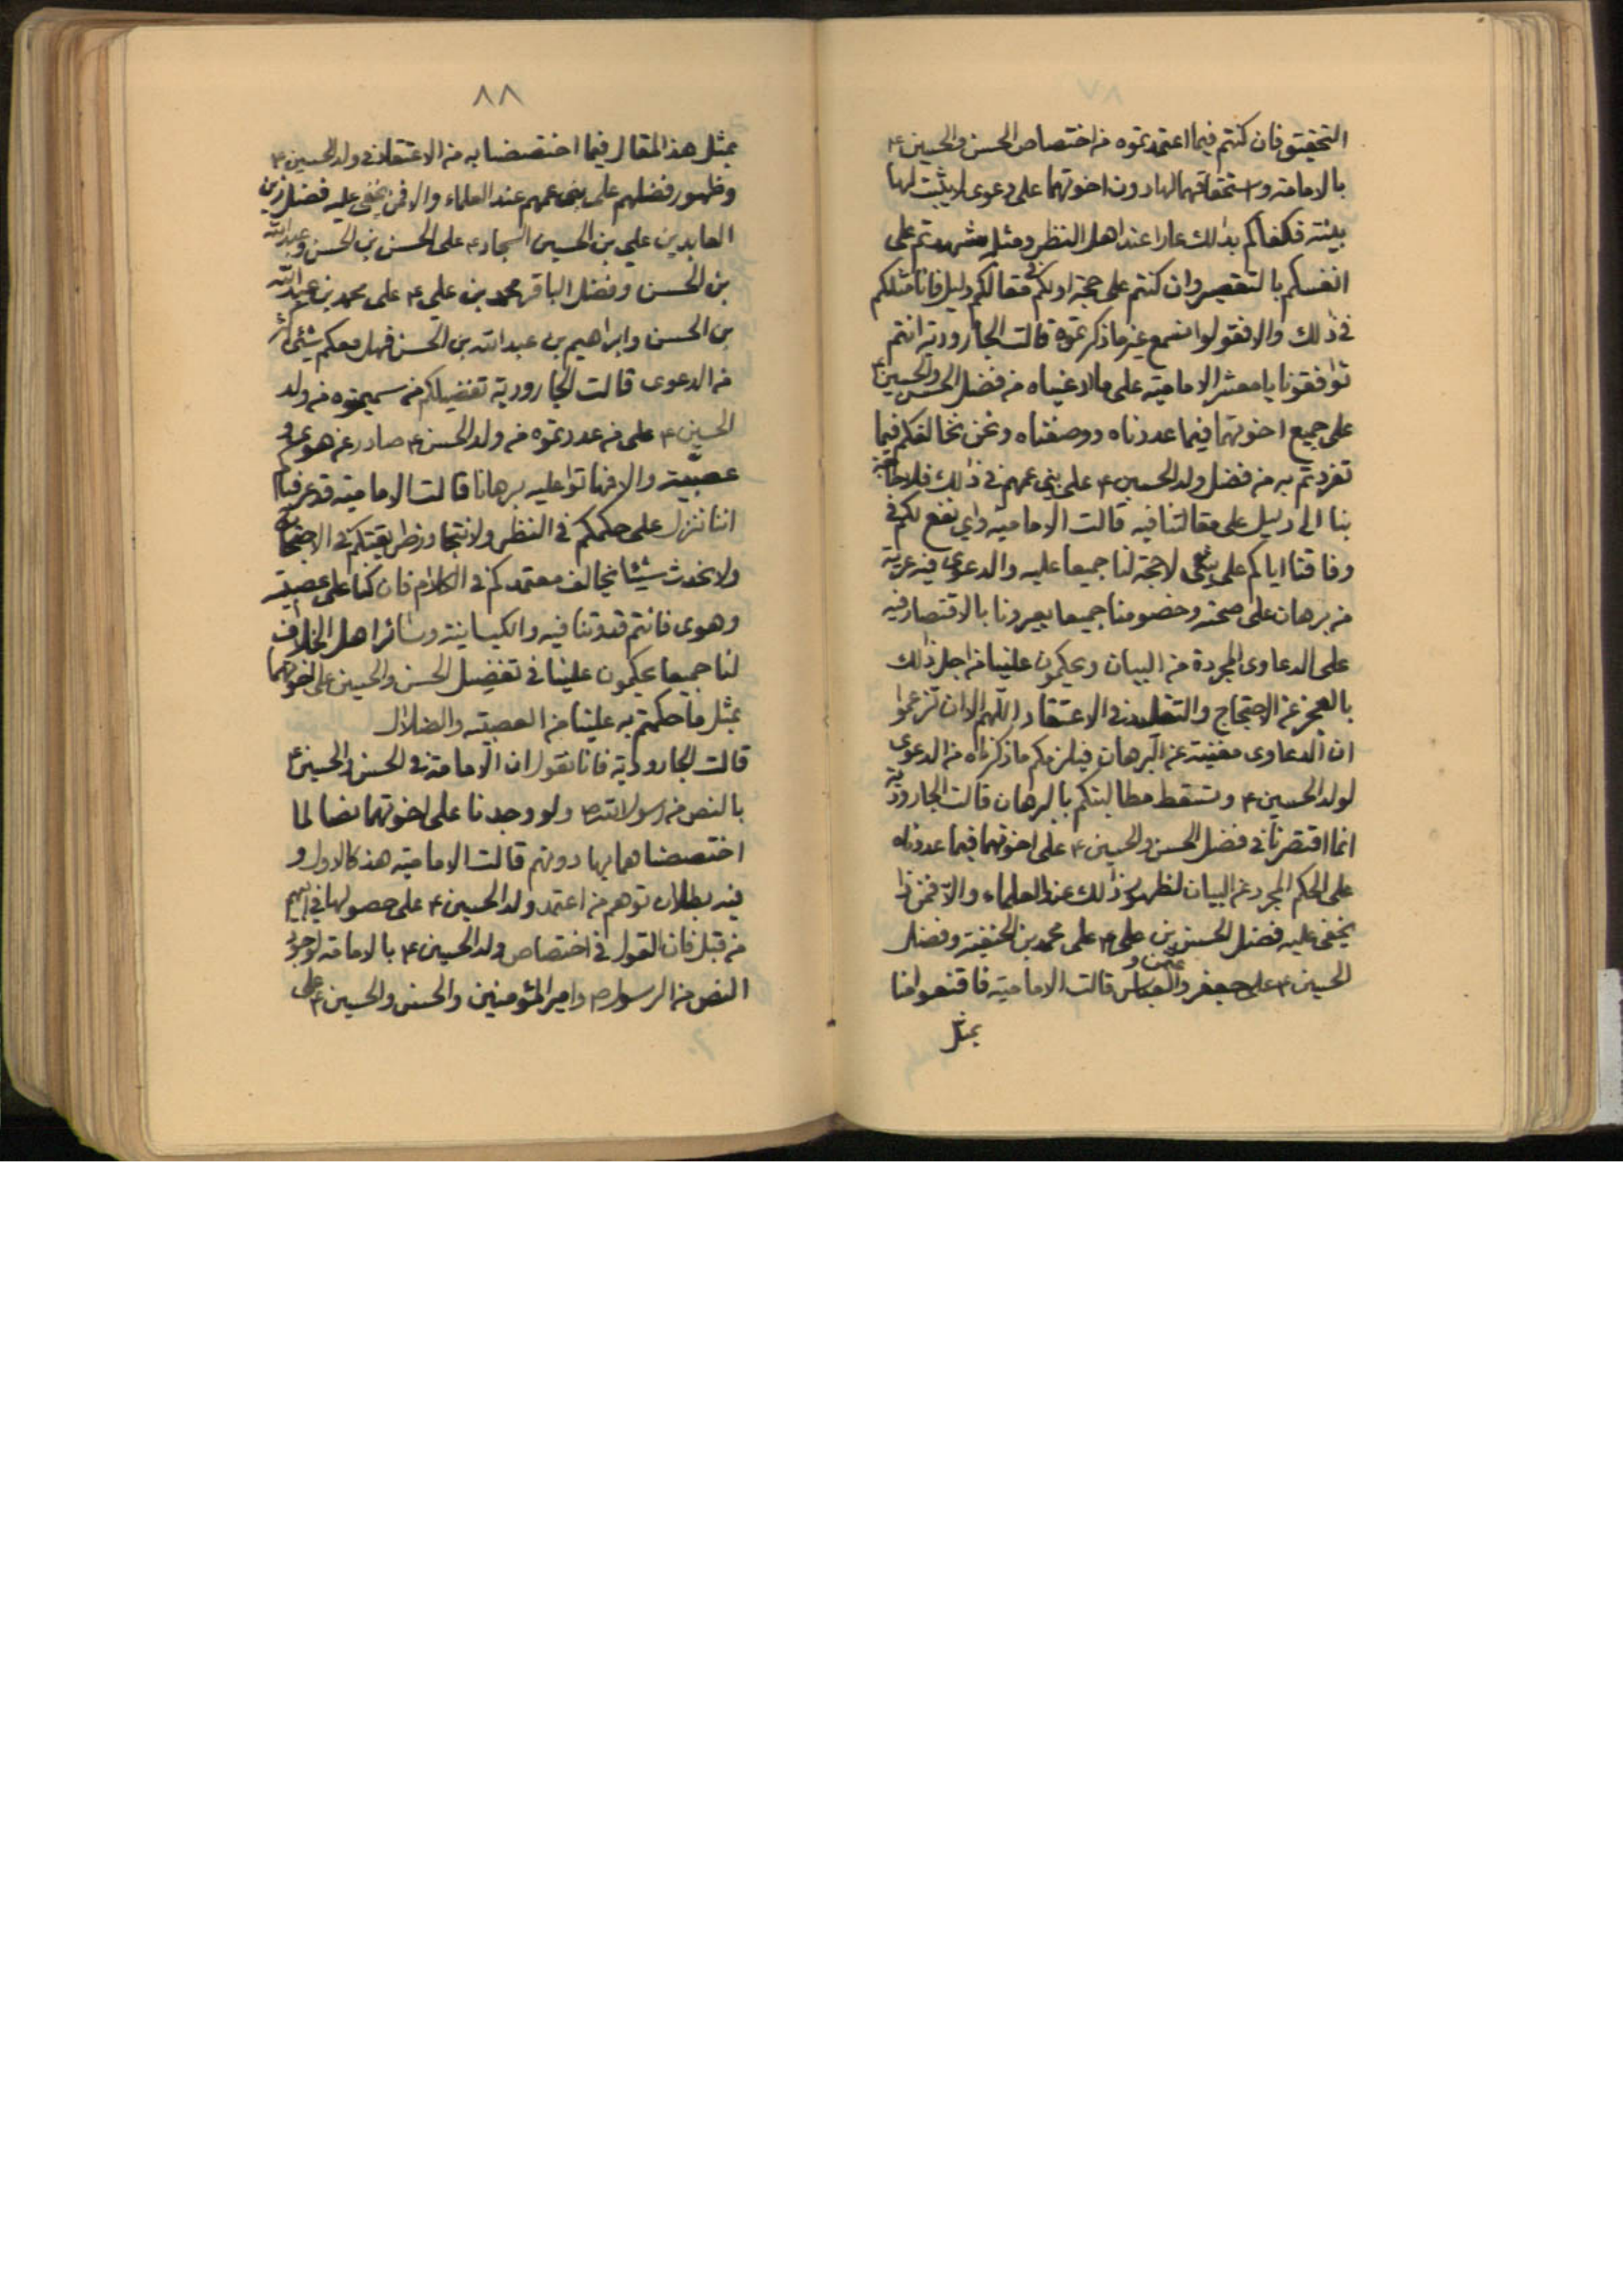 التحقيق فان كنتم فيما اعتمدتموه من اختصاص الحسن والحسين ع
بالامامة واستحقاقهما لها دون اخوتهما على دعوى لا يثبت لها
بينة فكفاكم بذلك عارا عند اهل النظر ومثله شهدتم على
انفسكم بالتقصير وان كنتم على حجة اولكم في مقالكم دليل فانا مثلكم
في ذلك والا فقولوا نسمع غير ما ذكرتموه قالت الجارودية انتم
توافقونا يا معشر الامامية على ما لاغنياه من فضل الحسن والحسين ع
على جميع اخوتهما فيما عددناه ووصفناه ونحن نخالفكم فيما
تفردتم به من فضل ولد الحسين ع على بني عمهم في ذلك فلا حاجة
بنا الى دليل على مقالتنا فيه قالت الامامية واي نفع لكم في
وفاقنا اياكم على شئ لا حجة لنا جميعا عليه والدعوى فيه عرية
من برهان على صحته وخصومنا جميعا يعيرونا بالاقتصار فيه
على الدعاوى المجردة من البيان ويحكمون علينا من اجل ذلك
بالعجز عن الاحتجاج والتقليد في الاعتقاد اللهم الا ان تزعموا
ان الدعاوى مغنية عن البرهان فيلزمكم ما ذكرناه من الدعوى
لولد الحسين ع وتسقط مطالبتكم بالبرهان قالت الجارودية
انما اقتصرنا في فضل الحسن والحسين ع على اخوتهما فيما عددناه
على الحكم المجرد عن البيان لظهور ذلك عند العلماء والا فمن ذا
يخفى عليه فضل الحسن بن علي ع على محمد بن الحنفية وفضل
الحسين ع على جعفر والعباس قالت الامامية فاقنعوا منا
بمثل
٨٨
بمثل هذا المقال فيما اختصصنا به من الاعتقاد في ولد الحسين ع
وظهور فضلهم على بني عمهم عند العلماء والا فمن يخفى عليه فضل زين
العابدين علي بن الحسين السجاد ع على الحسن بن الحسن وعبد الله
بن الحسن وفضل الباقر محمد بن علي ع على محمد بن عبد الله
بن الحسن وابراهيم بن عبد الله بن الحسن فهل معكم شئ اكثر
من الدعوى قالت الجارودية تفضيلكم من سميتموه من ولد
الحسين ع على من عددتموه من ولد الحسن ع صادر عن هوى و
عصبية والا فهاتوا عليه برهانا قالت الامامية قد عرفناكم
اننا ننزل على حكمكم في النظر ولا نتجاوز طريقتكم في الاحتجاج
ولا نحدث شيئا يخالف معتمدكم في الكلام فان كنا على عصبية
وهوى فانتم قدوتنا فيه والكيسانية وسائر اهل الخلاف
لنا جميعا يحكمون علينا في تفضيل الحسن والحسين على اخوتهما
بمثل ما حكمتم به علينا من العصبية والضلال
قالت الجارودية فانا نقول ان الامامة في الحسن والحسين ع
بالنص من رسول الله ص ولو وجدنا على اخوتهما نصا لما
اختصصناهما بها دونهم قالت الامامية هذا كالاول و
فيه بطلان توهم من اعتمد ولد الحسين ع على حصولها في ابيهم
من قبل فان القول في اختصاص ولد الحسين ع بالامامة لوجود
النص من الرسول ص وامير المؤمنين والحسن والحسين ع على